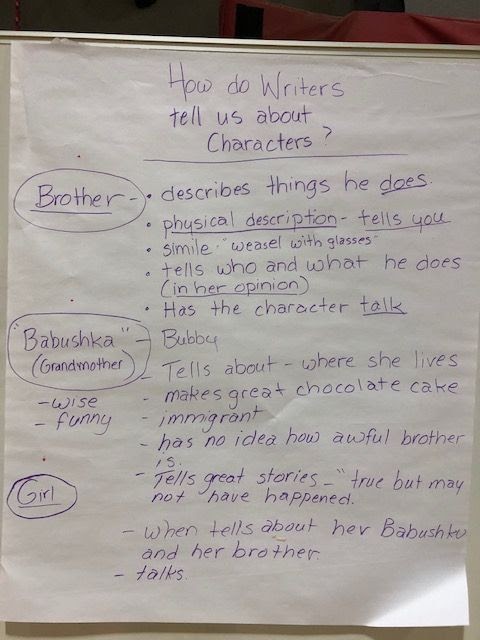 How do Writers
tell us about
Characters?
Brother - • describes things he does.
• physical description - tells you
• simile "weasel with glasses"
• tells who and what he does
(in her opinion)
• Has the character talk
"Babushka" - Bubby
(Grandmother)
- Tells about - where she lives
- wise
- makes great chocolate cake
- funny
- immigrant
- has no idea how awful brother
is.
- Tells great stories - "true but may
not have happened.
Girl
- when tells about her Babushka
and her brother.
- talks.